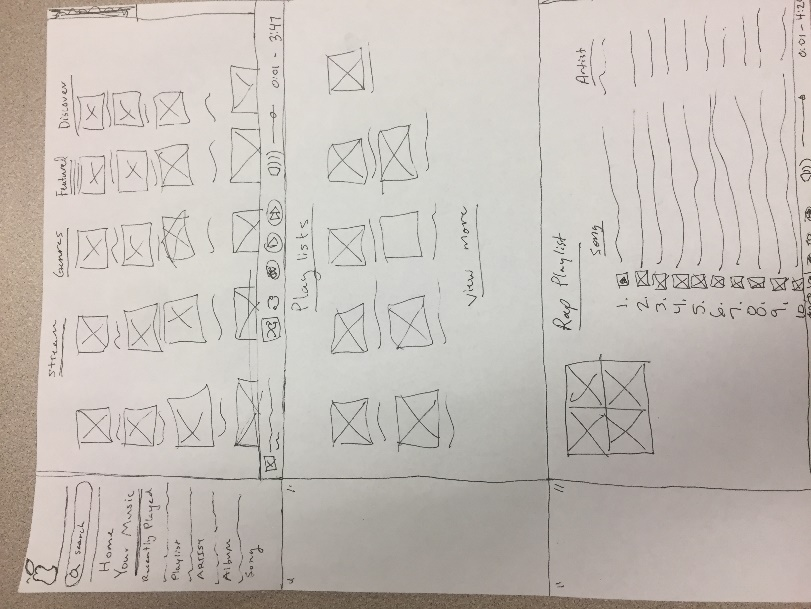 Search
Home
Your Music
Recently Played
Playlist
ARTIST
Album
Song
Stream Genres Featured Discover
0:01 - 3:47
Playlists
View more
Rap Playlist
Song Artist
1.
2.
3.
4.
5.
6.
7.
8.
9.
10.